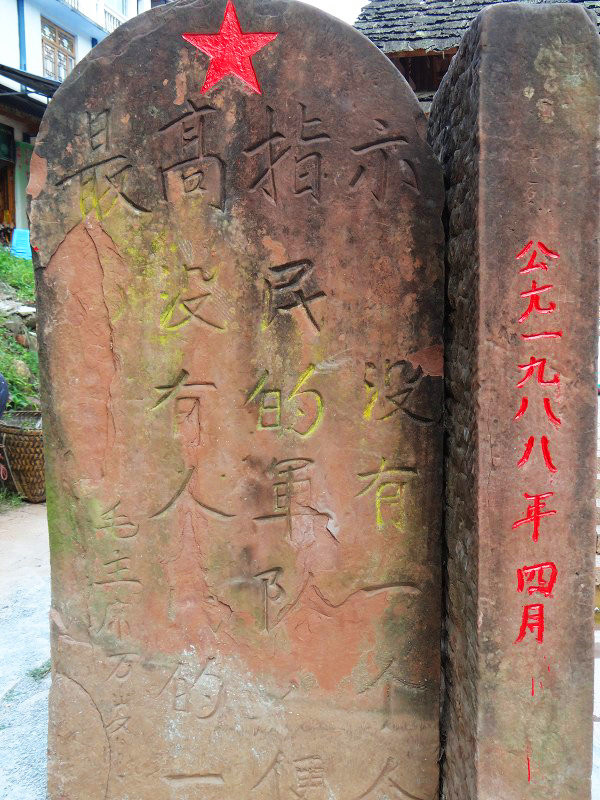 最高指示
没有一个人
民的軍队
便
没有人
的一
毛主席万岁
公元一九八八年四月